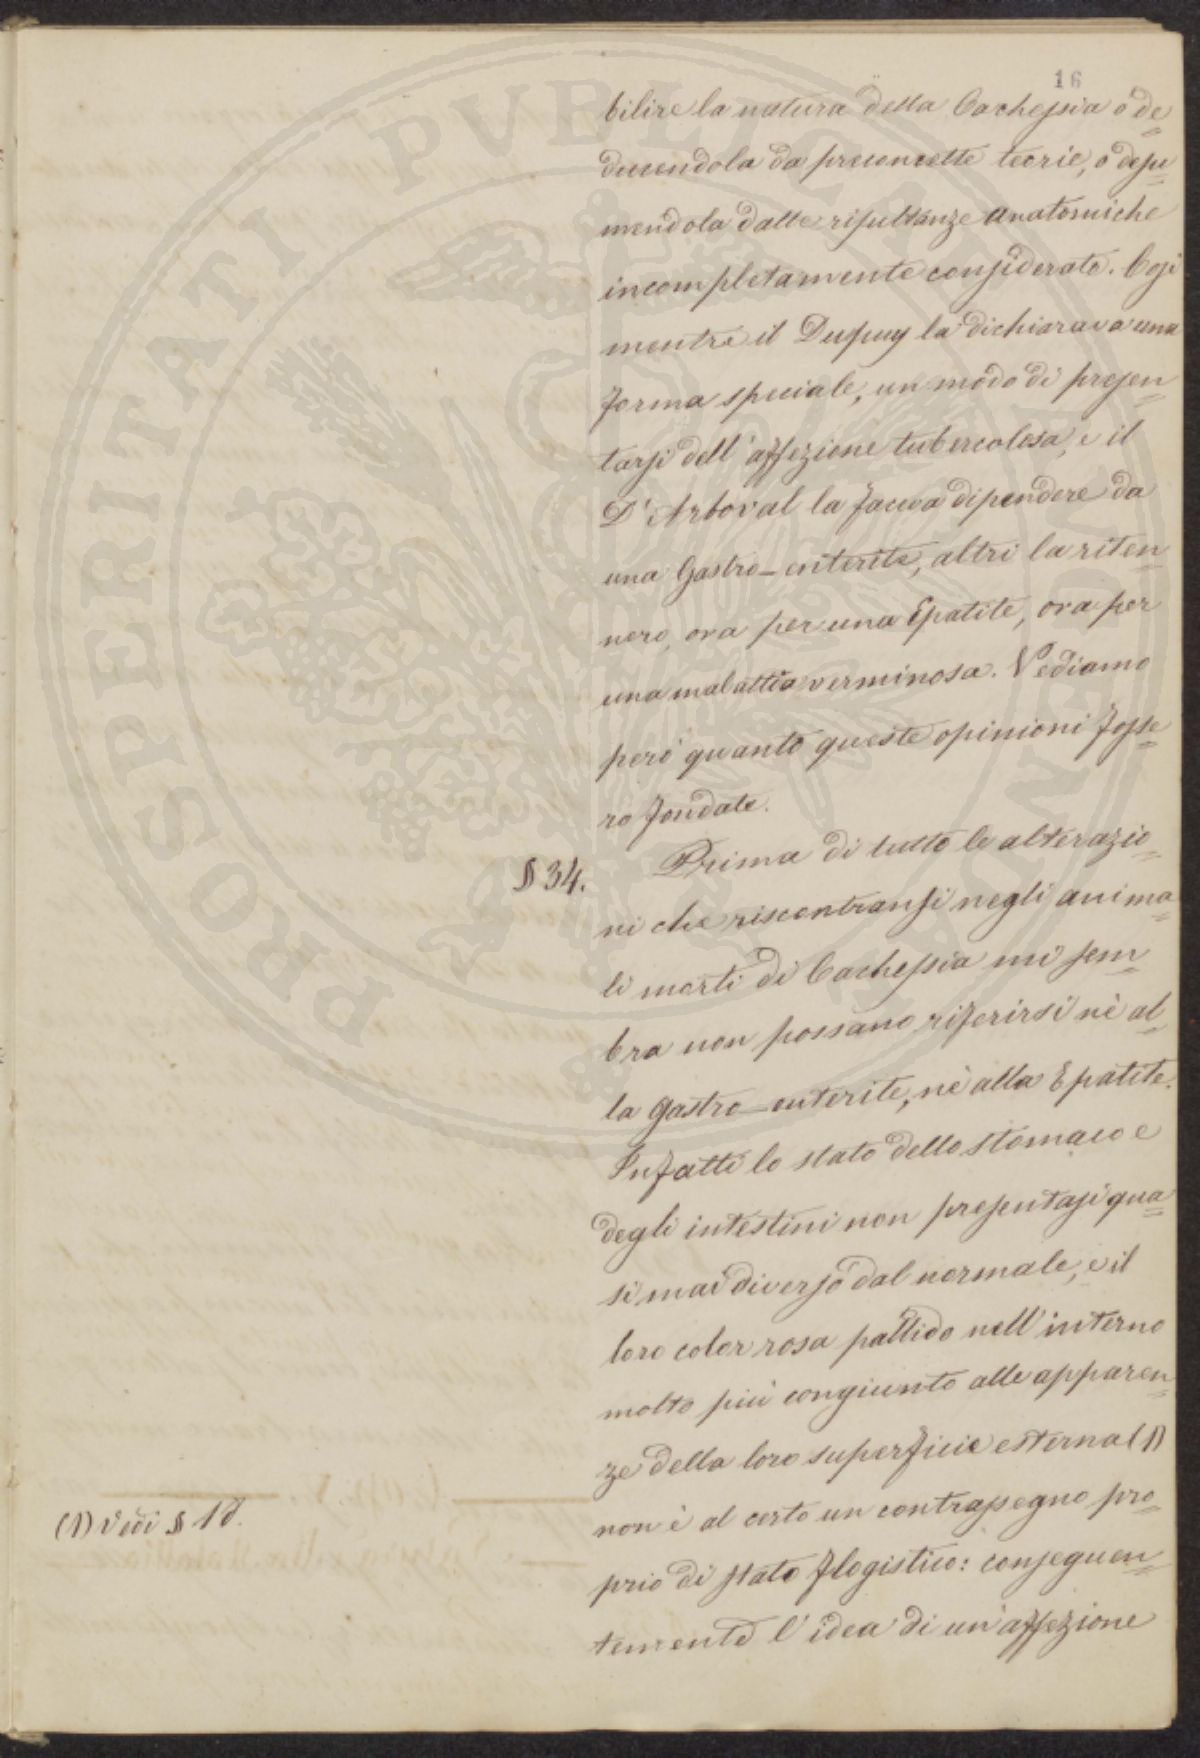 16
bilire la natura della Cachessia o de=
ducendola da preconcette teorie, o desu=
mendola dalle risultanze anatomiche
incompletamente considerate. Così
mentre il Dupuy la dichiarava una
forma speciale, un modo di presen=
tarsi dell'affezione tubercolosa, e il
D'Arboval la faceva dipendere da
una Gastro-enterite, altri la riten=
nero, ora per una Epatite, ora per
una malattia verminosa. Vediamo
però quanto queste opinioni fosse=
ro fondate.
§ 34. Prima di tutto le alterazio=
ni che riscontransi negli anima=
li morti di Cachessia mi sem=
bra non possano riferirsi nè al=
la Gastro-enterite, nè alla Epatite.
Infatti lo stato dello stomaco e
degli intestini non presentasi qua=
si mai diverso dal normale, e il
loro color rosa pallido nell'interno
molto più congiunto alle apparen=
ze della loro superficie esterna (1)
non è al certo un contrassegno pro=
prio di stato flogistico: conseguen=
temente l'idea di un'affezione
(1) Vedi § 18.
PROSPERITATI PVBLICAE